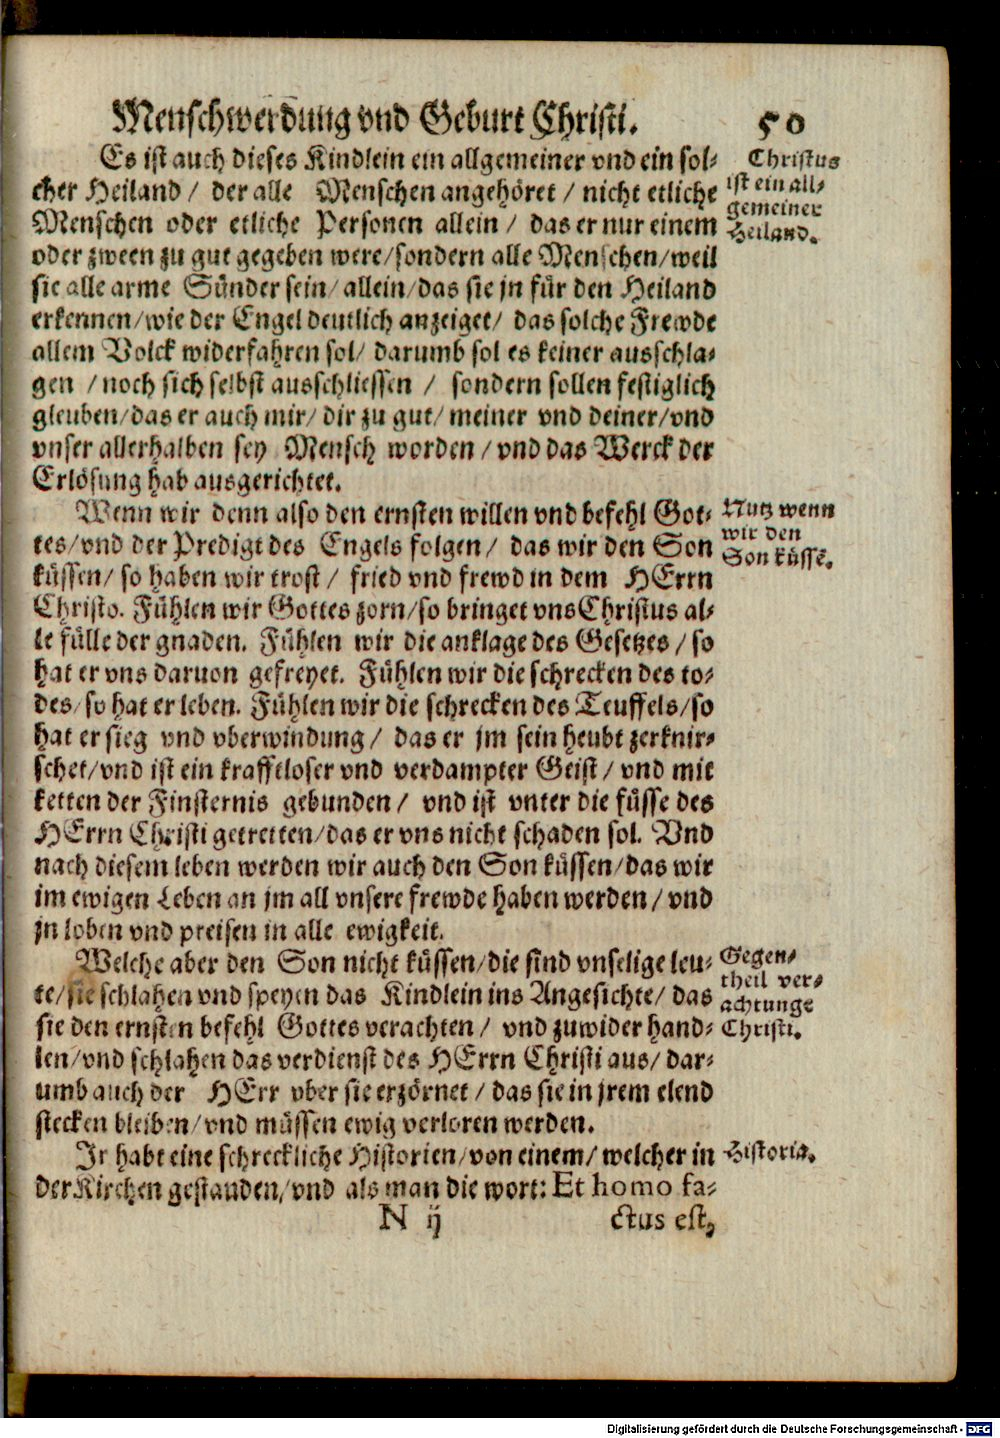 Menschwerdung vnd Geburt Christi. 50
Es ist auch dieses Kindlein ein allgemeiner vnd ein sol-
cher Heiland / der alle Menschen angehöret / nicht etliche
Menschen oder etliche Personen allein / das er nur einem
oder zween zu gut gegeben were/sondern alle Menschen/weil
sie alle arme Sünder sein/allein/das sie jn für den Heiland
erkennen/wie der Engel deutlich anzeiget/ das solche Frewde
allem Volck widerfahren sol/ darumb sol es keiner ausschla-
gen /noch sich selbst ausschliessen / sondern sollen festiglich
gleuben/das er auch mir/ dir zu gut/ meiner vnd deiner/vnd
vnser allerhalben sey Mensch worden /vnd das Werck der
Erlösung hab ausgerichtet.
Christus
ist ein all-
gemeiner
Heiland.
Wenn wir denn also den ernsten willen vnd befehl Got-
tes/vnd der Predigt des Engels folgen/ das wir den Son
küssen/ so haben wir trost/ fried vnd frewd in dem HErrn
Christo. Fühlen wir Gottes zorn/so bringet vns Christus al-
le fülle der gnaden. Fühlen wir die anklage des Gesetzes /so
hat er vns daruon gefreyet. Fühlen wir die schrecken des to-
des/so hat er leben. Fühlen wir die schrecken des Teuffels/so
hat er sieg vnd vberwindung/ das er jm sein heubt zerknir-
schet/vnd ist ein krafftloser vnd verdampter Geist / vnd mit
ketten der Finsternis gebunden/ vnd ist vnter die füsse des
HErrn Christi getretten/das er vns nicht schaden sol. Vnd
nach diesem leben werden wir auch den Son küssen/das wir
im ewigen Leben an jm all vnsere frewde haben werden/ vnd
jn loben vnd preisen in alle ewigkeit.
Nutz wenn
wir den
Son küsse.
Welche aber den Son nicht küssen/die sind vnselige leu-
te/sie schlahen vnd speyen das Kindlein ins Angesichte/ das
sie den ernsten befehl Gottes verachten/ vnd zuwider hand-
len/vnd schlahen das verdienst des HErrn Christi aus/ dar-
umb auch der HErr vber sie erzörnet /das sie in jrem elend
stecken bleiben/vnd müssen ewig verloren werden.
Gegen-
theil ver-
achtunge
Christi.
Jr habt eine schreckliche Historien/von einem/welcher in
der Kirchen gestanden/vnd als man die wort: Et homo fa-
Historia.
N ij ctus est,
Digitalisierung gefördert durch die Deutsche Forschungsgemeinschaft - DFG